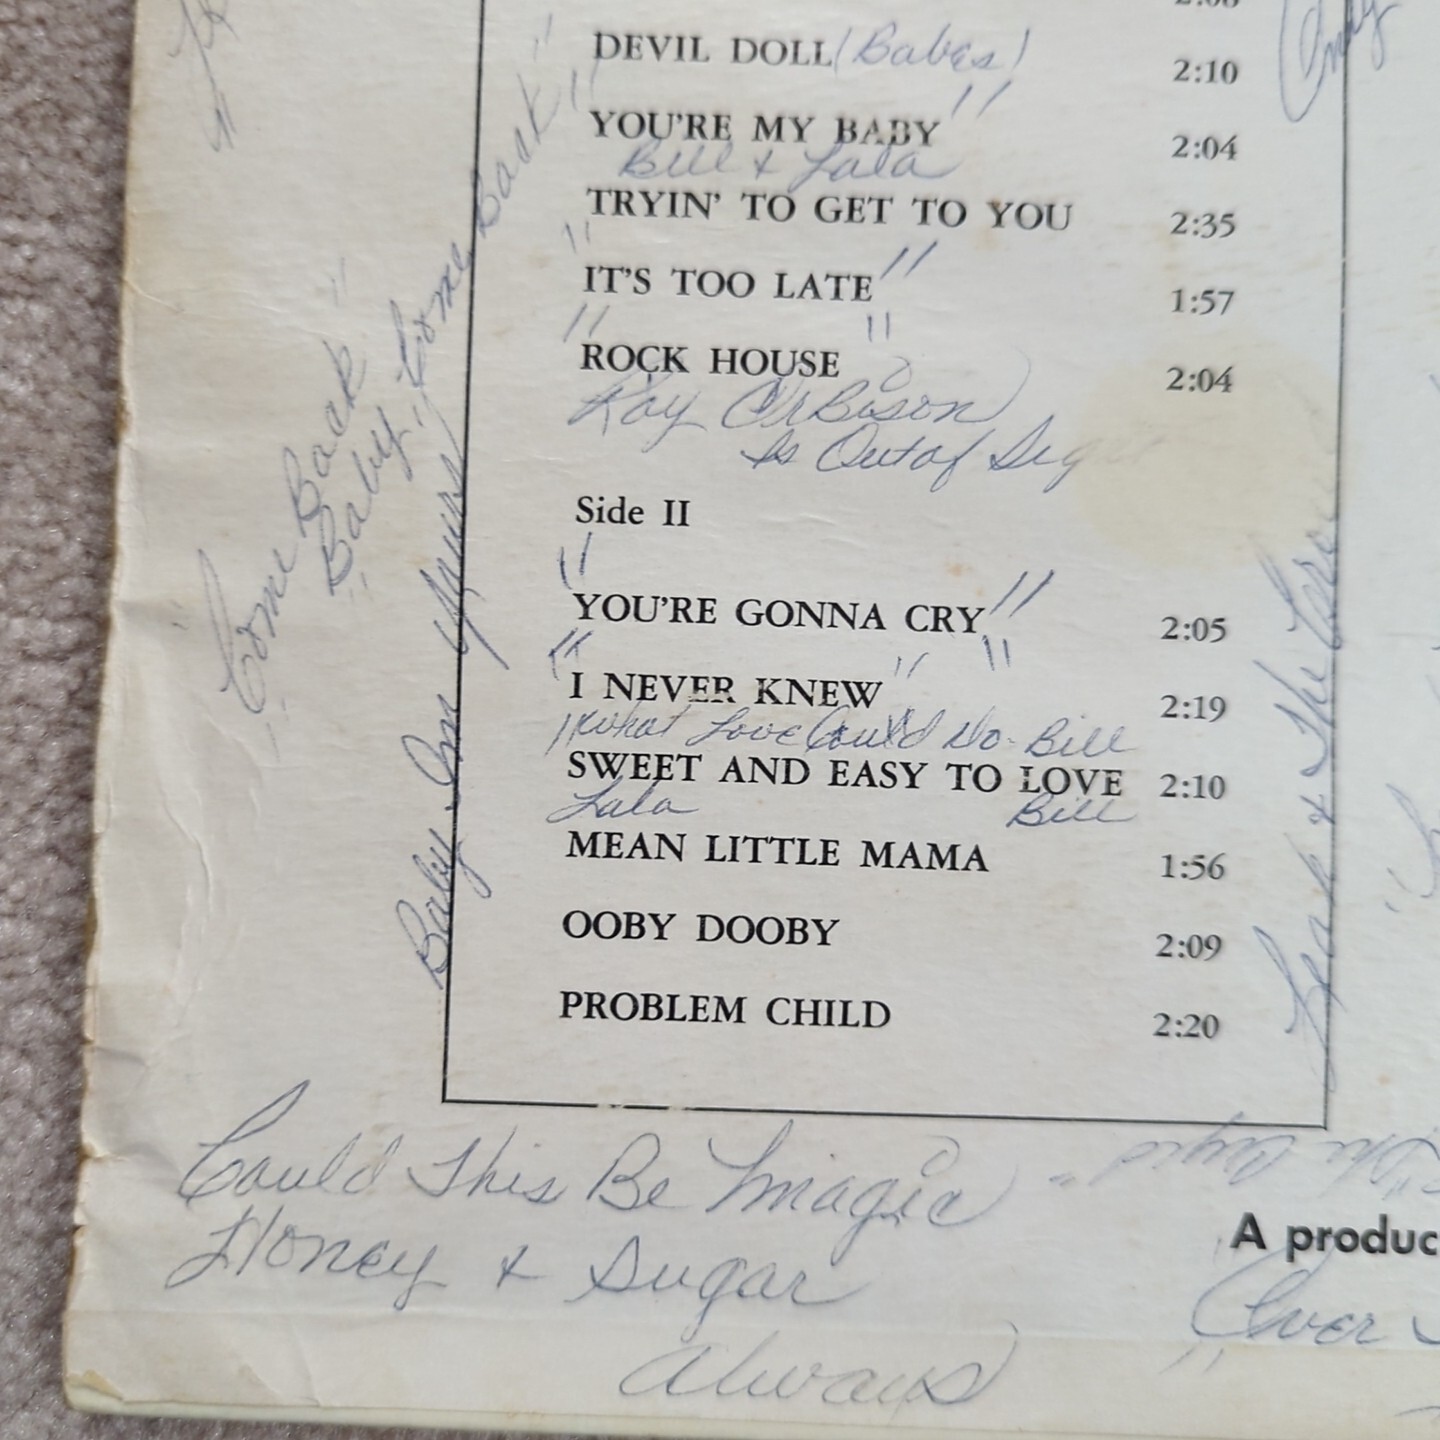 DEVIL DOLL (Babes) 2:10
" YOU'RE MY BABY " 2:04
Bill & Lala
TRYIN' TO GET TO YOU 2:35
" IT'S TOO LATE " 1:57
" ROCK HOUSE " 2:04
Roy OrBison
Is Out of Sig
Side II
" YOU'RE GONNA CRY " 2:05
" I NEVER KNEW " 2:19
"What Love Could Do - Bill
SWEET AND EASY TO LOVE 2:10
Lala Bill
MEAN LITTLE MAMA 1:56
OOBY DOOBY 2:09
PROBLEM CHILD 2:20
"Come Back"
"Baby, Come Back"
Baby Im Yours
& The
Could This Be Magic
Honey & Sugar
Always
A produc
Over